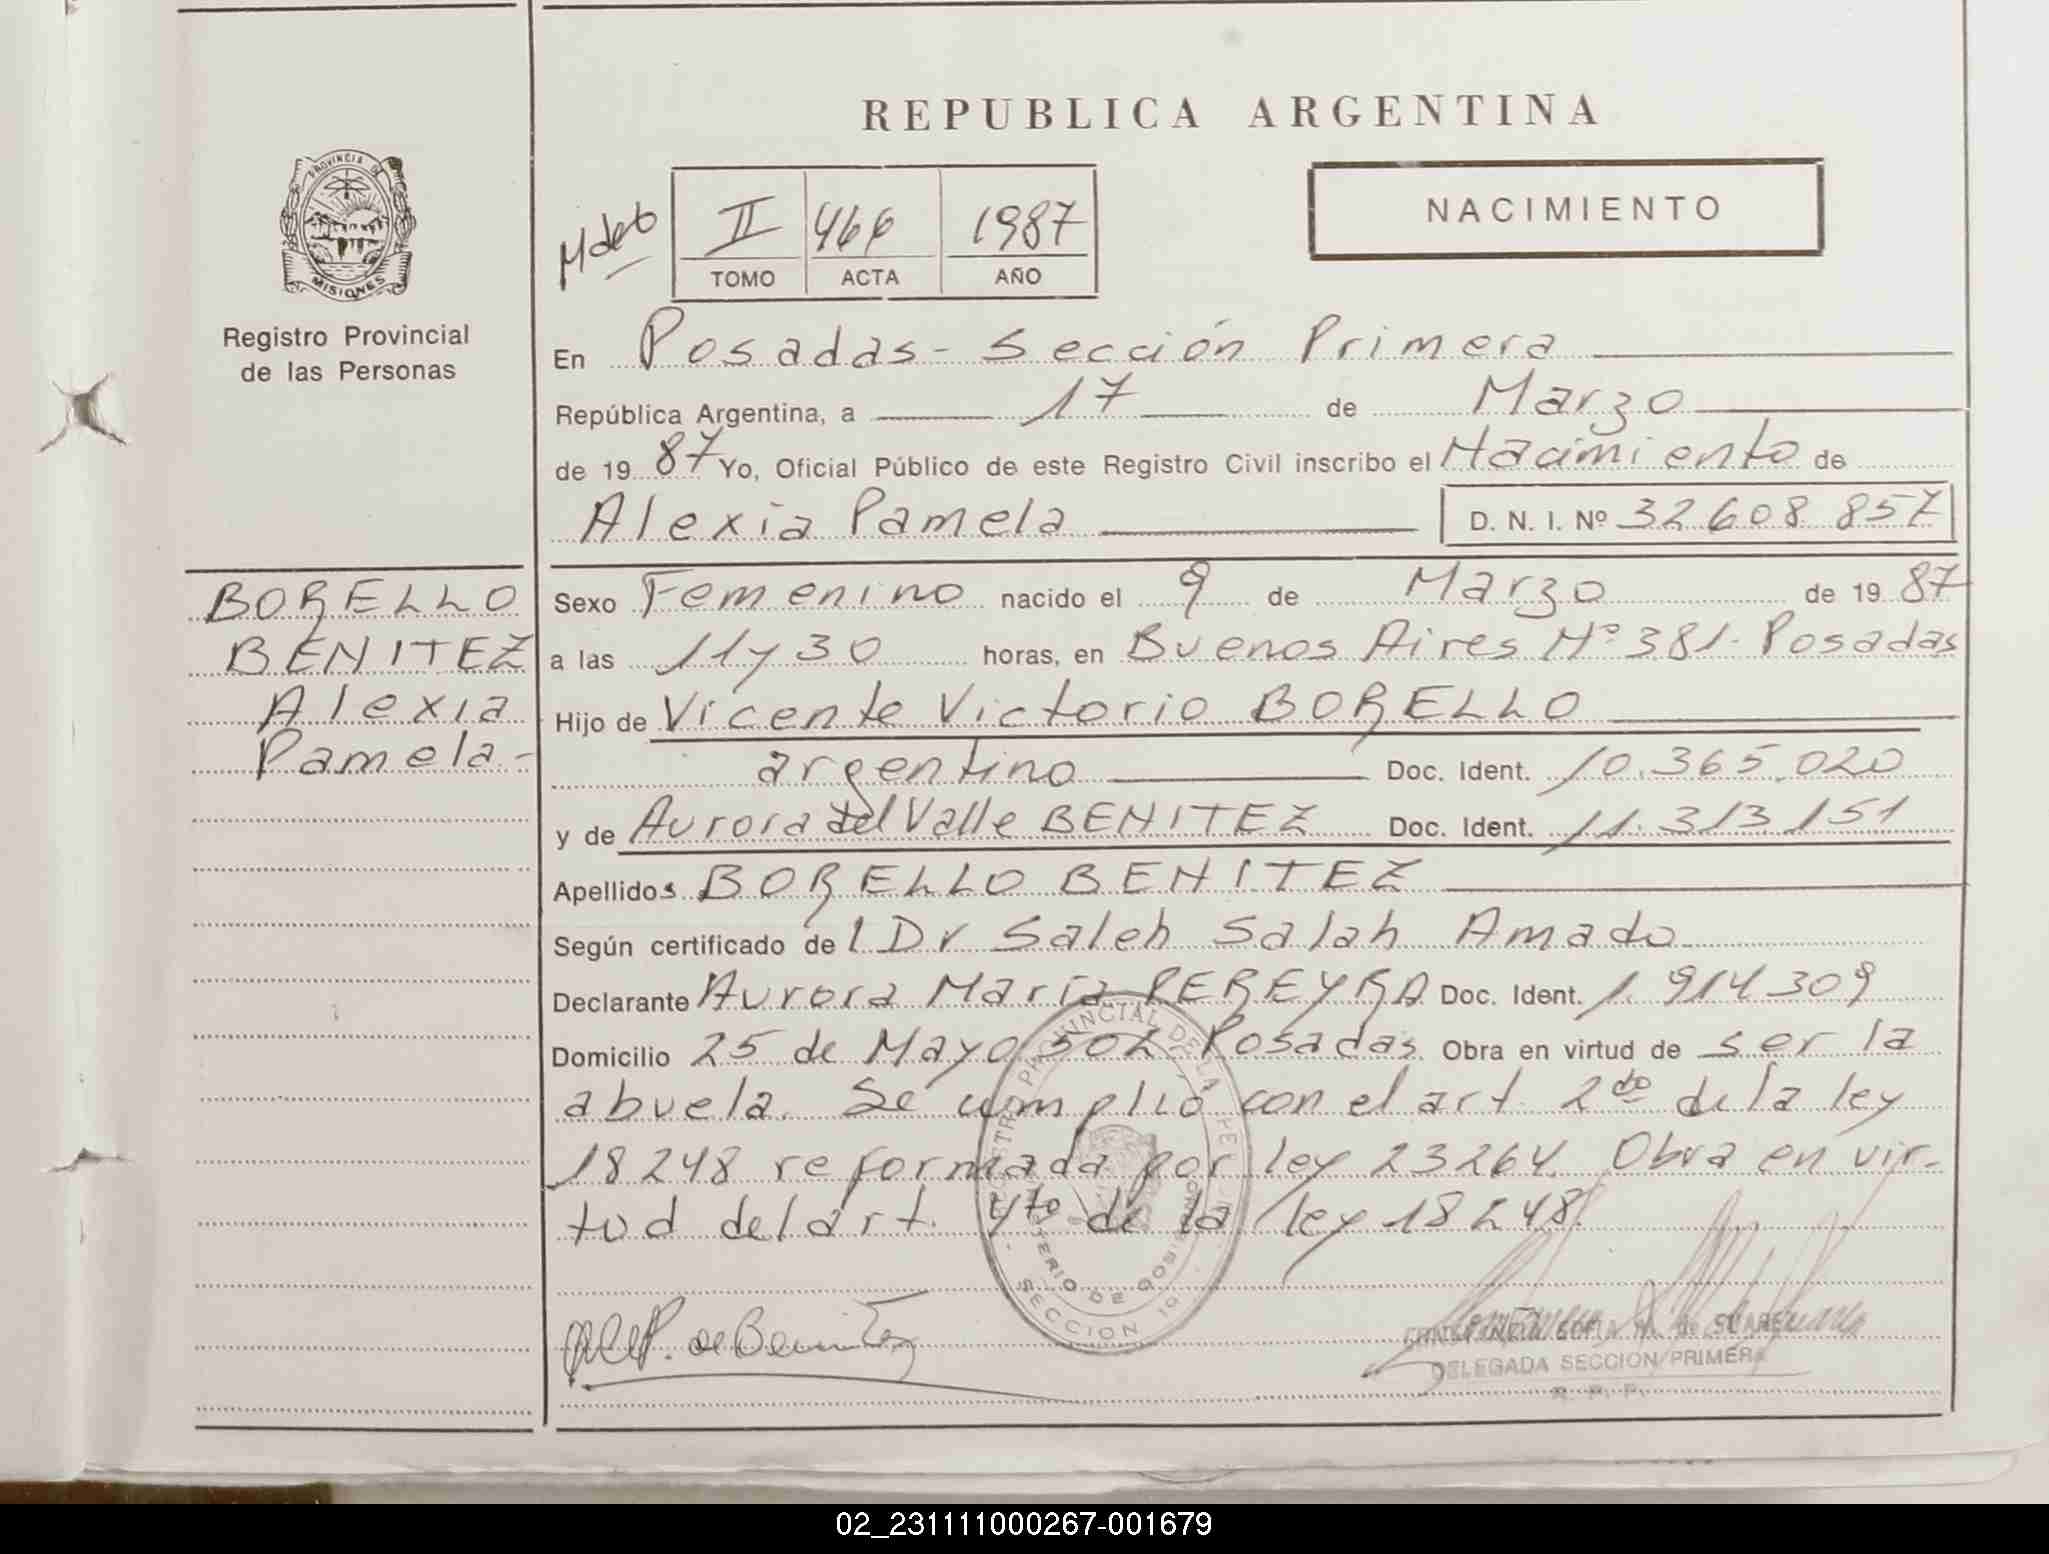 REPUBLICA ARGENTINA
PROVINCIA DE
MISIONES
Registro Provincial
de las Personas
NACIMIENTO
II 466 1987
TOMO ACTA AÑO
En Posadas - Sección Primera
República Argentina, a 17 de Marzo
de 1987 Yo, Oficial Público de este Registro Civil inscribo el Nacimiento de
Alexia Pamela D. N. I. Nº 32 608 857
BORELLO
BENITEZ
Alexia
Pamela -
Sexo Femenino nacido el 9 de Marzo de 1987
a las 11 y 30 horas, en Buenos Aires Nº 381 - Posadas
Hijo de Vicente Victorio BORELLO
argentino Doc. Ident. 10.365.020
y de Aurora del Valle BENITEZ Doc. Ident. 11.313.151
Apellidos BORELLO BENITEZ
Según certificado del Dr Saleh Salah Amado
Declarante Aurora María PEREYRA Doc. Ident. 1.914309
Domicilio 25 de Mayo 502 Posadas. Obra en virtud de ser la
abuela. Se cumplió con el art 2do de la ley
18248 reformada por ley 23264. Obra en vir-
tud del art. 4to de la ley 18248.
de Benitez
DELEGADA SECCION PRIMERA
R. P. P.
02_231111000267-001679